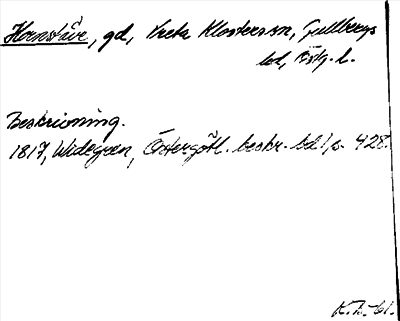 Hornstäve, gd, Vreta Klosters sn, Gullbergs
hd, Östg. l.
Beskrivning.
1817, Widegren, Östergötl. beskr. bd 1, s. 428.